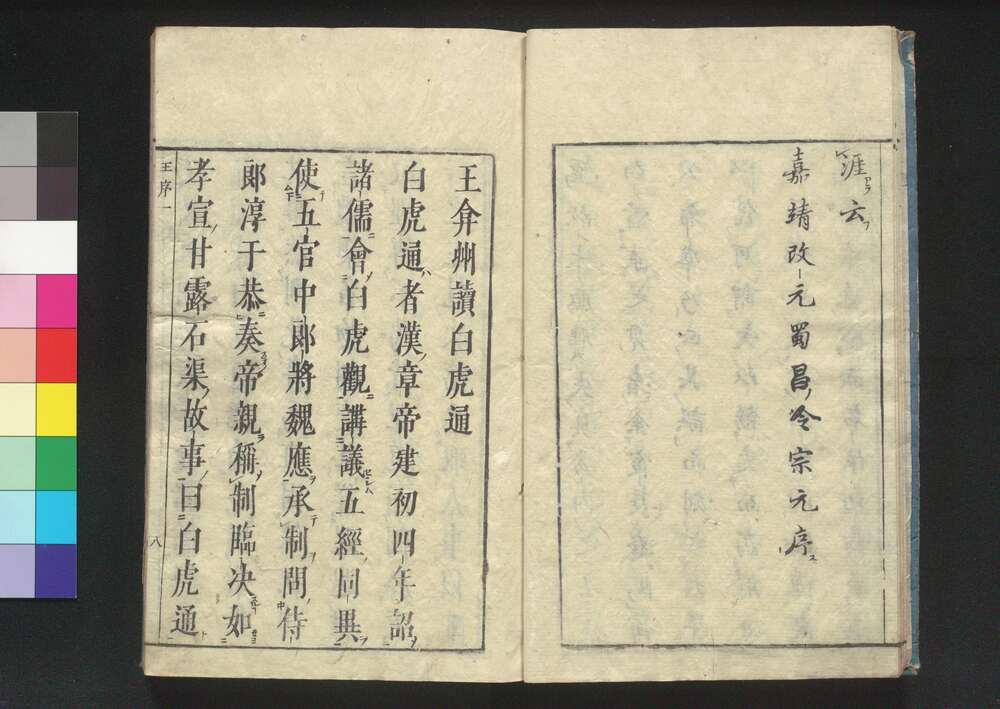 涯云
嘉靖改元蜀昌冷宗元序
王弇州讀白虎通
白虎通者漢章帝建初四年詔
諸儒會白虎觀講議五經同異
使五官中郎將魏應承制問侍
郎淳于恭奏帝親稱制臨决如
孝宣甘露石渠故事曰白虎通
王序一
八